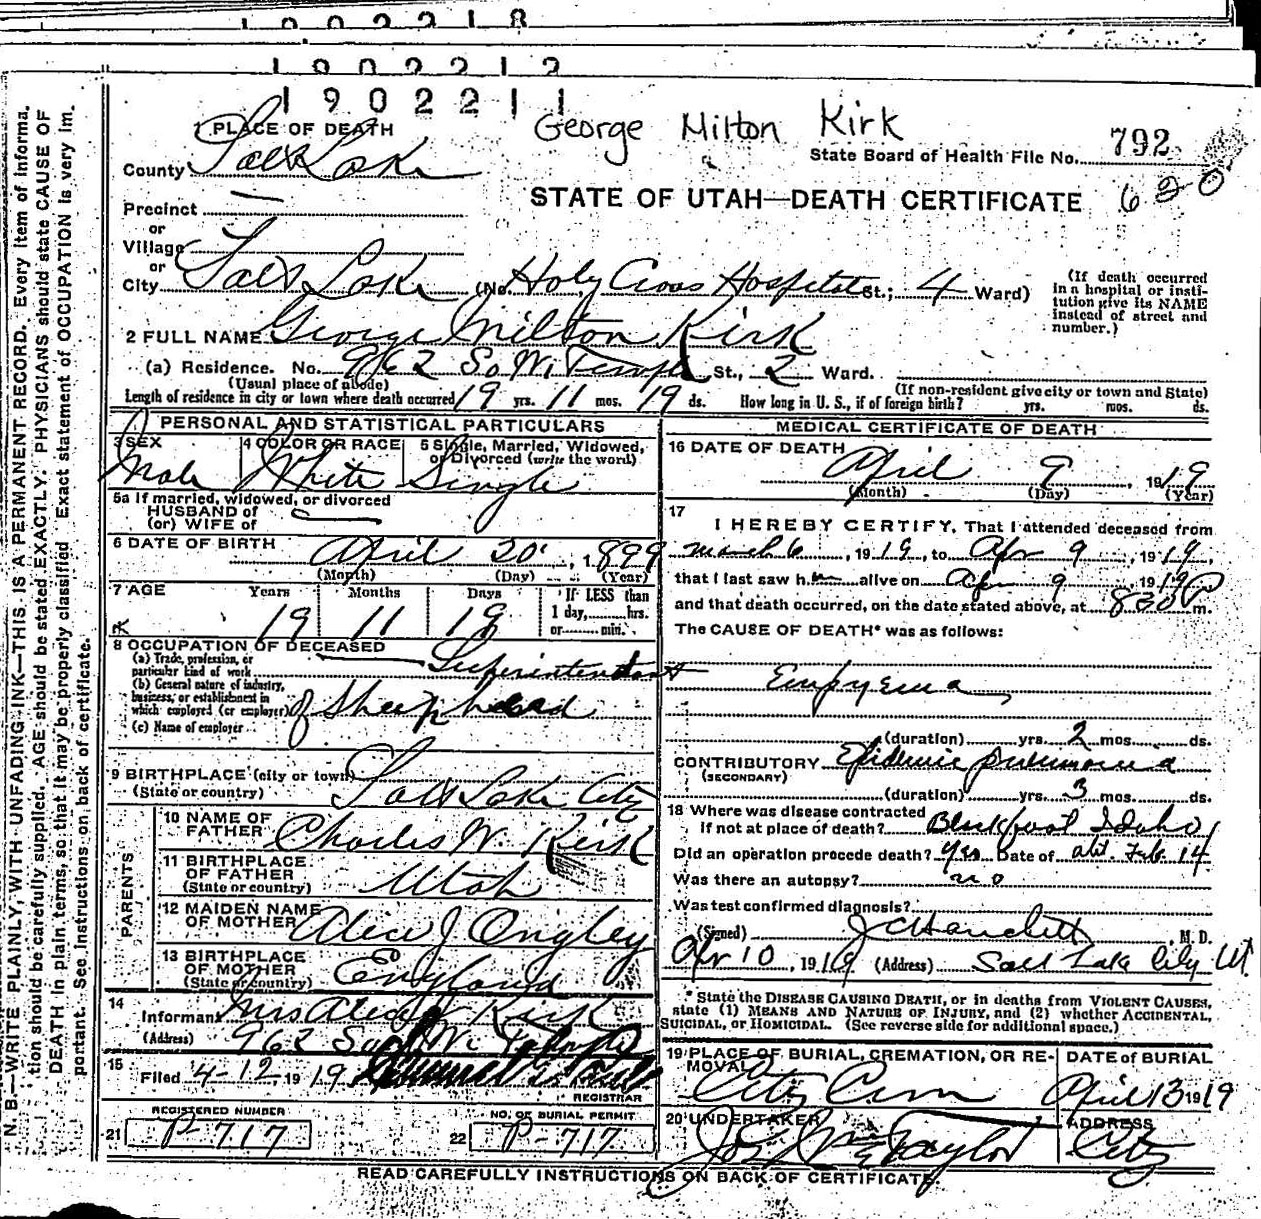 1902218
1902212
1902211
N. B.—WRITE PLAINLY, WITH UNFADING INK—THIS IS A PERMANENT RECORD. Every item of informa-
tion should be carefully supplied. AGE should be stated EXACTLY. PHYSICIANS should state CAUSE OF
DEATH in plain terms, so that it may be properly classified. Exact statement of OCCUPATION is very im-
portant. See instructions on back of certificate.
George Milton Kirk
1 PLACE OF DEATH
State Board of Health File No. 792
County Salt Lake
STATE OF UTAH—DEATH CERTIFICATE 620
Precinct —
or
Village
or
City Salt Lake (No. Holy Cross Hospital St.; 4 Ward)
(If death occurred in a hospital or insti-
tution give its NAME
instead of street and
number.)
2 FULL NAME George Milton Kirk
(a) Residence. No. 962 So. W. Temple St., 2 Ward.
(Usual place of abode) (If non-resident give city or town and State)
Length of residence in city or town where death occurred 19 yrs. 11 mos. 19 ds. How long in U. S., if of foreign birth? yrs. mos. ds.
PERSONAL AND STATISTICAL PARTICULARS
3 SEX Male
4 COLOR OR RACE White
5 Single, Married, Widowed,
or Divorced (write the word) Single
5a If married, widowed, or divorced
HUSBAND of
(or) WIFE of —
6 DATE OF BIRTH April 20, 1899
(Month) (Day) (Year)
7 AGE Years Months Days If LESS than
1 day, hrs.
or min.
19 11 19
8 OCCUPATION OF DECEASED
(a) Trade, profession, or
particular kind of work Superintendant
(b) General nature of industry,
business, or establishment in
which employed (or employer) of Sheep herd
(c) Name of employer
9 BIRTHPLACE (city or town) Salt Lake City
(State or country)
PARENTS
10 NAME OF
FATHER Charles W. Kirk
11 BIRTHPLACE
OF FATHER Utah
(State or country)
12 MAIDEN NAME
OF MOTHER Alice J
13 BIRTHPLACE
OF MOTHER England
(State or country)
14
Informant Mrs Alice J Kirk
(Address) 962 South W. Temple
15
Filed 4-12, 1919
REGISTRAR
REGISTERED NUMBER
21 P-717
NO. OF BURIAL PERMIT
22 P-717
MEDICAL CERTIFICATE OF DEATH
16 DATE OF DEATH
April 9, 1919
(Month) (Day) (Year)
17
I HEREBY CERTIFY, That I attended deceased from
March 6, 1919, to Apr 9, 1919,
that I last saw him alive on Apr 9, 1919
and that death occurred, on the date stated above, at 830 P m.
The CAUSE OF DEATH* was as follows:
Empyema
(duration) yrs. 2 mos. ds.
CONTRIBUTORY Epidemic pneumonia
(SECONDARY)
(duration) yrs. 3 mos. ds.
18 Where was disease contracted
if not at place of death? Blackfoot Idaho
Did an operation precede death? Yes Date of abt. Feb. 14
Was there an autopsy? no
Was test confirmed diagnosis?
(Signed) M. D.
Apr 10, 1919 (Address) Salt Lake City Ut
* State the DISEASE CAUSING DEATH, or in deaths from VIOLENT CAUSES,
state (1) MEANS AND NATURE OF INJURY, and (2) whether ACCIDENTAL,
SUICIDAL, or HOMICIDAL. (See reverse side for additional space.)
19 PLACE OF BURIAL, CREMATION, OR RE-
MOVAL
City Cem
DATE of BURIAL
April 13 1919
20 UNDERTAKER
Jos Wm Taylor
ADDRESS
City
READ CAREFULLY INSTRUCTIONS ON BACK OF CERTIFICATE.